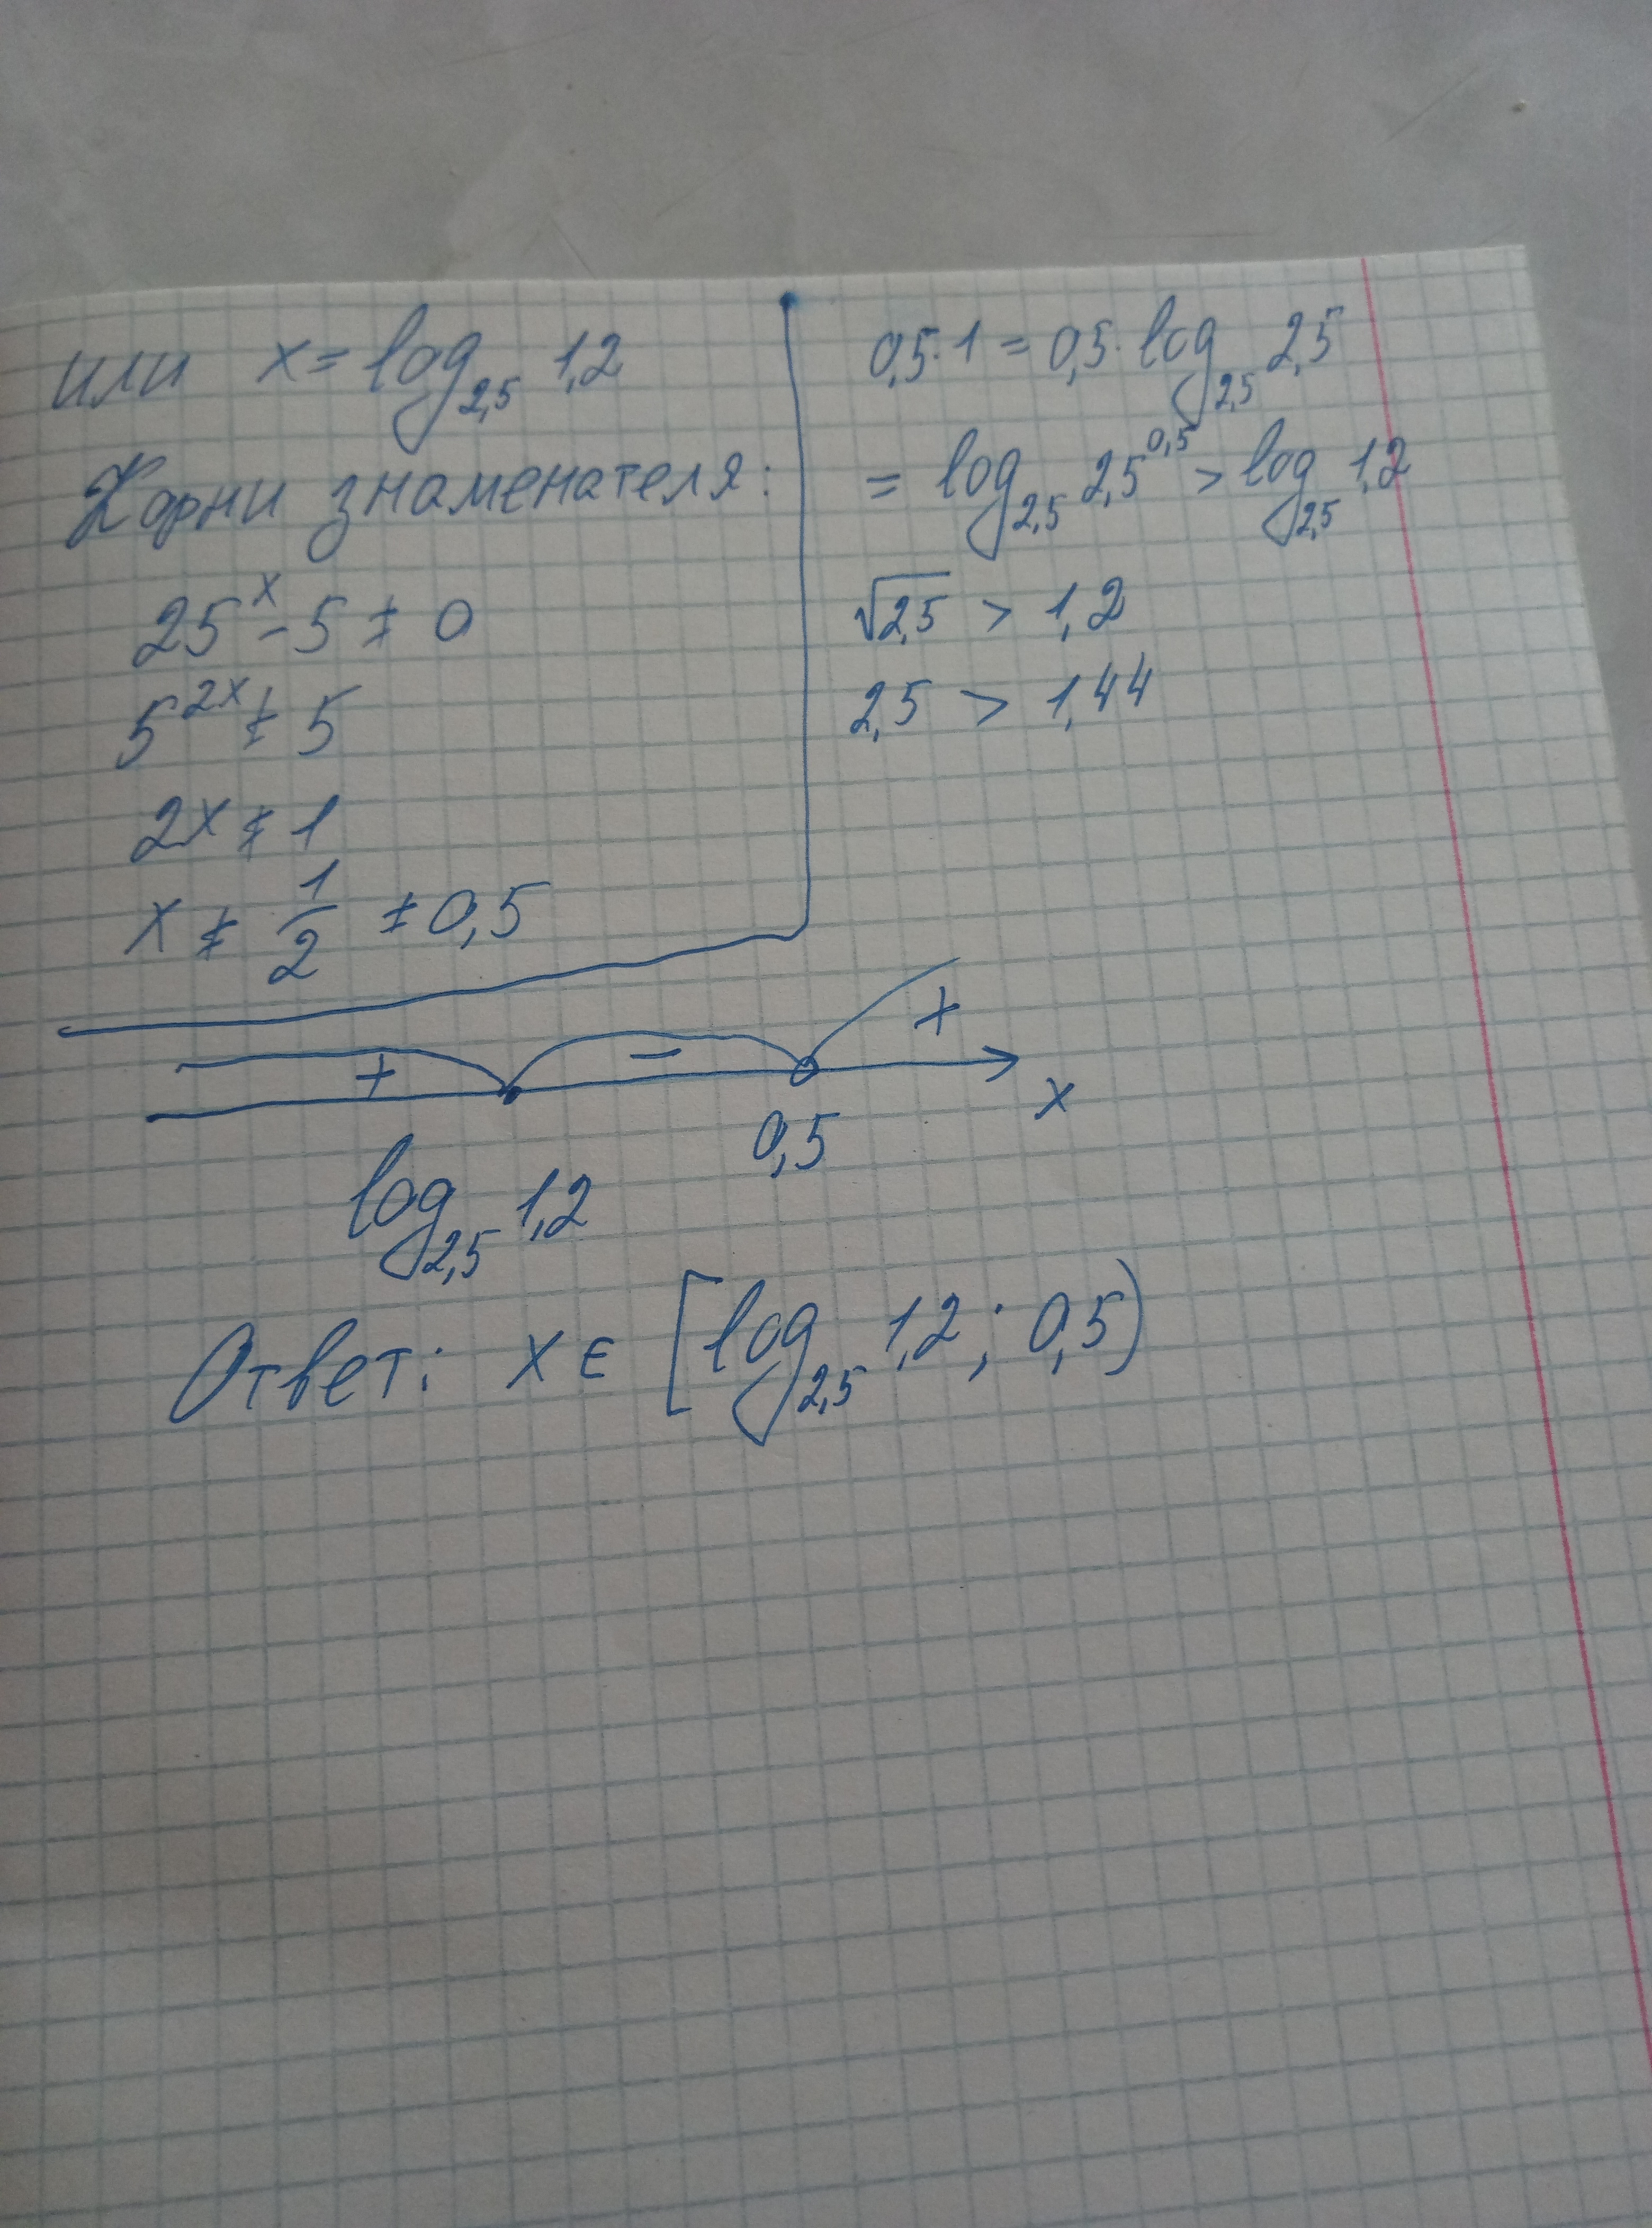 или x = log₂,₅ 1,2
Корни знаменателя:
25ˣ - 5 ≠ 0
5²ˣ ≠ 5
2x ≠ 1
x ≠ 1/2 ≠ 0,5
0,5·1 = 0,5·log₂,₅ 2,5
= log₂,₅ 2,5^0,5 > log₂,₅ 1,2
√2,5 > 1,2
2,5 > 1,44
+ − +
log₂,₅ 1,2 0,5 x
Ответ: x ∈ [log₂,₅ 1,2; 0,5)